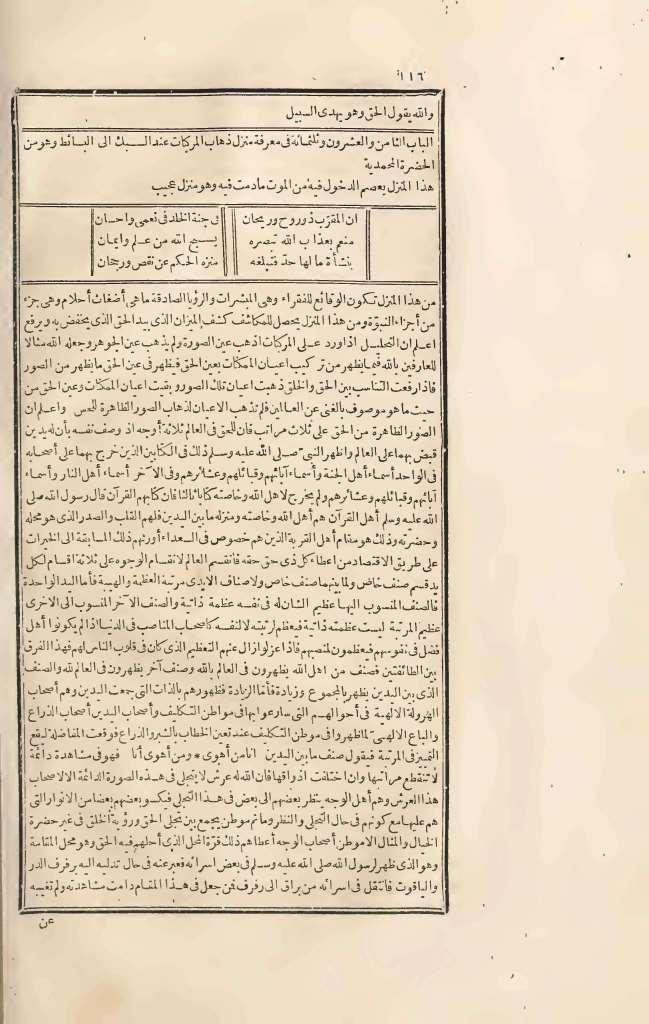 ١١٦
والله يقول الحق وهو يهدى السبيل
الباب الثامن والعشرون وثلثمائة فى معرفة منزل ذهاب المركبات عند السبك الى البسائط وهو من
الحضرة المحمدية
هذا المنزل يعصم الدخول فيه من الموت مادمت فيه وهو منزل عجيب
ان المقرّب ذو روح وريحان فى جنة الخلد فى نعمى واحسان
منعم بعذاب الله تبصره يسبح الله من علم وايمان
بنشأة ما لها حدّ فتبلغه منزه الحكم عن نقص ورجحان
من هذا المنزل تكون الوقائع للفقراء وهى المبشرات والرؤيا الصادقة ما هى أضغاث أحلام وهى جزء
من أجزاء النبوّة ومن هذا المنزل يحصل للمكاشف كشف الميزان الذى بيد الحق الذى يخفض به ويرفع
اعلم ان التحليل اذا ورد على المركبات اذهب عين الصورة ولم يذهب عين الجوهر وجعله الله مثالا
للعارفين بالله فيما يظهر من تركيب اعيان الممكنات بعين الحق فيظهر فى عين الحق ما يظهر من الصور
فاذا رفعت التناسب بين الحق والخلق ذهبت اعيان تلك الصور وبقيت اعيان الممكنات وعين الحق من
حيث ما هو موصوف بالغنى عن العالمين فلم تذهب الاعيان لذهاب الصور الظاهرة للحس واعلم ان
الصور الظاهرة من الحق على ثلاث مراتب فان للحق فى العالم ثلاثة أوجه اذ وصف نفسه بأن له يدين
قبض بهما على العالم واظهر النبى صلى الله عليه وسلم ذلك فى الكتابين الذين خرج بهما على أصحابه
فى الواحد أسماء أهل الجنة وأسماء آبائهم وقبائلهم وعشائرهم وفى الآخر أسماء أهل النار وأسماء
آبائهم وقبائلهم وعشائرهم ولم يخرج لاهل الله وخاصته كتابا ثالثا فان كتابهم القرآن قال رسول الله صلى
الله عليه وسلم أهل القرآن هم أهل الله وخاصته ومنزله ما بين اليدين فلهم القلب والصدر الذى هو محله
وحضرته وذلك هو مقام أهل القربة الذين هم خصوص فى السعداء أورثهم ذلك المسابقة الى الخيرات
على طريق الاقتصاد من اعطاء كل ذى حق حقه فانقسم العالم لانقسام الوجوه على ثلاثة اقسام لكل
يد قسم صنف خاص ولما بينهما صنف خاص ولاصناف الايدى مرتبة العظمة والهيبة فأما اليد الواحدة
فالصنف المنسوب اليها عظيم الشان له فى نفسه عظمة ذاتية والصنف الآخر المنسوب الى الاخرى
عظيم المرتبة ليست عظمته ذاتية فيعظم لرتبته لا لنفسه كاصحاب المناصب فى الدنيا اذا لم يكونوا أهل
فضل فى نفوسهم فيعظمون لمنصبهم فاذا عزلوا زال عنهم التعظيم الذى كان فى قلوب الناس لهم فهذا الفرق
بين الطائفتين فصنف من اهل الله يظهرون فى العالم بالله وصنف آخر يظهرون فى العالم لله والصنف
الذى بين اليدين يظهر بالمجموع وزيادة فأما الزيادة فظهورهم بالذات التى جمعت اليدين وهم أصحاب
الهرولة الالهية فى أحوالهم التى سارعوا بها فى مواطن التكليف وأصحاب اليدين أصحاب الذراع
والباع الالهى لما ظهروا فى موطن التكليف عند تعين الخطاب بالشبر والذراع فوقعت المفاضلة ليقع
التميز فى المرتبة فيقول صنف ما بين اليدين انا من أهوى * ومن أهوى أنا فهو فى مشاهدة دائمة
لا تنقطع مراتبها وان اختلفت اذواقها فان الله له عرش لا يتجلى فى هذه الصورة الدائمة الا لاصحاب
هذا العرش وهم أهل الوجه ينظر بعضهم الى بعض فى هذا التجلى فيكسو بعضهم بعضا من الانوار التى
هم عليها مع كونهم فى حال التجلى والنظر وما ثم موطن يجمع بين تجلى الحق ورؤية الخلق فى غير حضرة
الخيال والمثال الا موطن أصحاب الوجه أعطاهم ذلك قوّة المحل الذى أحلهم فيه الحق وهو محل المقامة
وهو الذى ظهر لرسول الله صلى الله عليه وسلم فى بعض اسرائه فعبر عنه فى حال تدليه اليه برفرف الدر
والياقوت فانتقل فى اسرائه من براق الى رفرف فمن جعل فى هذا المقام دامت مشاهدته ولم تغيبه
عن